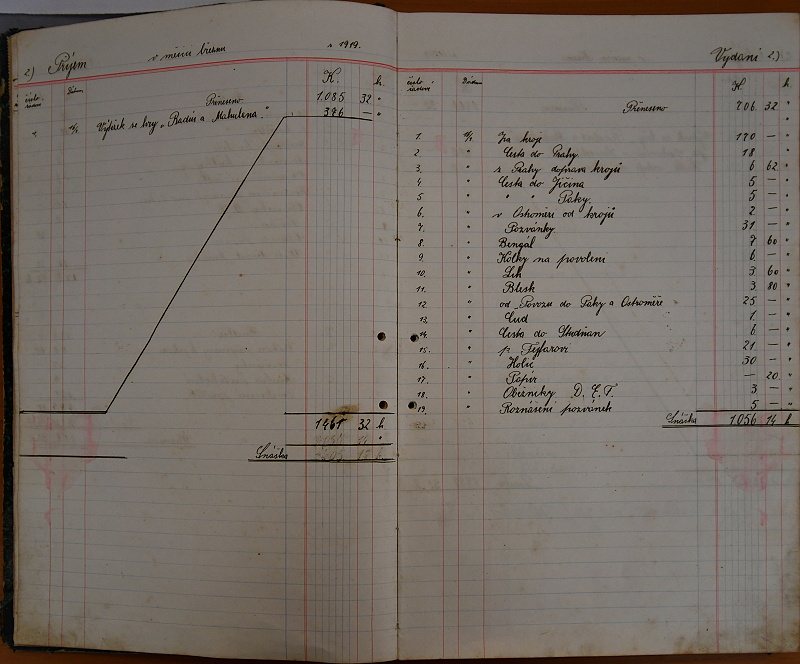 2) Příjem v měsíci březnu r. 1919.
číslo Datum K. h.
Přeneseno 1.085 32 "
Výtěžek ze hry „Radúz a Mahulena." 376 — "
1461 32 h
Snáška
Vydání 2.)
číslo Datum K h.
Přeneseno 706 32 "
1. Za kroje 170 — "
2. " Cesta do Prahy 18 — "
3. " z Prahy doprava krojů 6 62 "
4. " Cesta do Jičína 5 — "
5 " " " Páky. 5 — "
6. " v Ostroměři od krojů 2 — "
7. " Pozvánky 31 — "
8. " Bengál 7 60 "
9. " Kolky na povolení 6 — "
10. " Líh 3 60 "
11. " Blesk 3 80 "
12 " od „Povozu do Páky a Ostroměře 25 — "
13. " Cud 1 — "
14. " Cesta do Studňan 6 — "
15. " p. Fejfarovi 21 — "
16. " Holič 30 — "
17. " Papír — 20 "
18. " Oběžníky D. Č. T. 3 — "
19. " Roznášení pozvánek 5 — "
Snáška 1.056 14 h